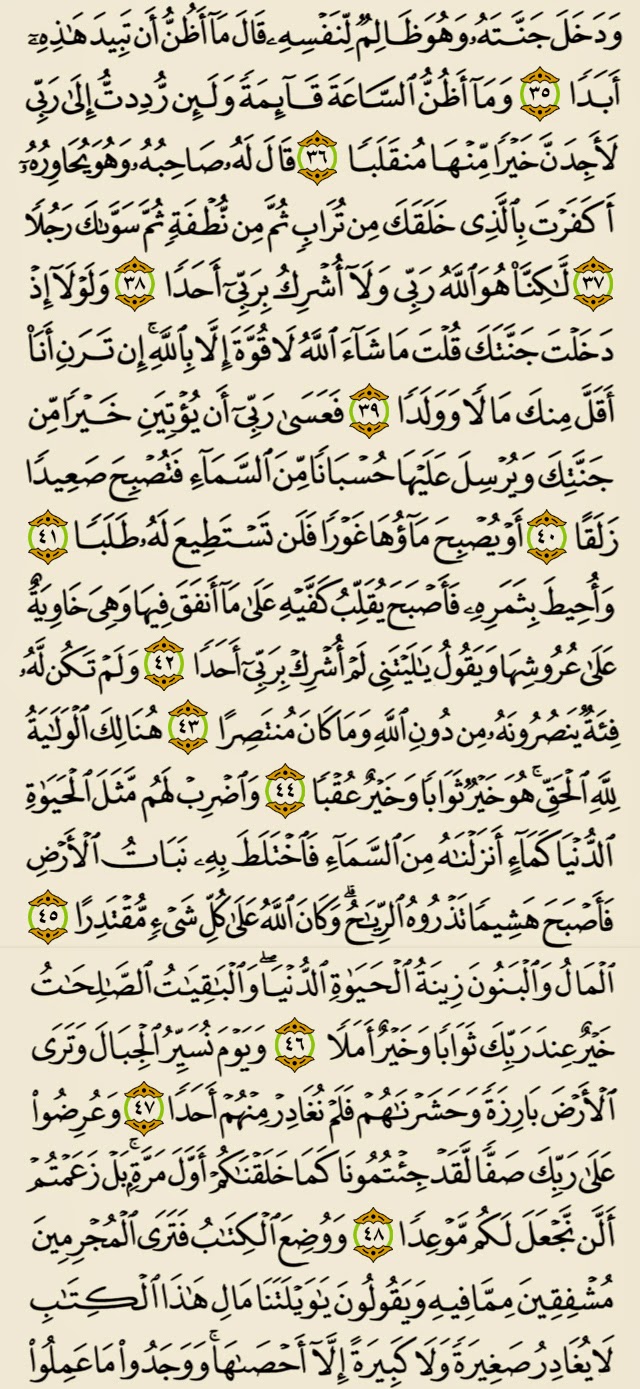 وَدَخَلَ جَنَّتَهُۥ وَهُوَ ظَالِمٌ لِّنَفْسِهِۦ قَالَ مَآ أَظُنُّ أَن تَبِيدَ هَٰذِهِۦٓ
أَبَدًا ٣٥ وَمَآ أَظُنُّ ٱلسَّاعَةَ قَآئِمَةً وَلَئِن رُّدِدتُّ إِلَىٰ رَبِّى
لَأَجِدَنَّ خَيْرًا مِّنْهَا مُنقَلَبًا ٣٦ قَالَ لَهُۥ صَاحِبُهُۥ وَهُوَ يُحَاوِرُهُۥٓ
أَكَفَرْتَ بِٱلَّذِى خَلَقَكَ مِن تُرَابٍ ثُمَّ مِن نُّطْفَةٍ ثُمَّ سَوَّىٰكَ رَجُلًا
٣٧ لَّٰكِنَّا۠ هُوَ ٱللَّهُ رَبِّى وَلَآ أُشْرِكُ بِرَبِّىٓ أَحَدًا ٣٨ وَلَوْلَآ إِذْ
دَخَلْتَ جَنَّتَكَ قُلْتَ مَا شَآءَ ٱللَّهُ لَا قُوَّةَ إِلَّا بِٱللَّهِ ۚ إِن تَرَنِ أَنَا۠
أَقَلَّ مِنكَ مَالًا وَوَلَدًا ٣٩ فَعَسَىٰ رَبِّىٓ أَن يُؤْتِيَنِ خَيْرًا مِّن
جَنَّتِكَ وَيُرْسِلَ عَلَيْهَا حُسْبَانًا مِّنَ ٱلسَّمَآءِ فَتُصْبِحَ صَعِيدًا
زَلَقًا ٤٠ أَوْ يُصْبِحَ مَآؤُهَا غَوْرًا فَلَن تَسْتَطِيعَ لَهُۥ طَلَبًا ٤١
وَأُحِيطَ بِثَمَرِهِۦ فَأَصْبَحَ يُقَلِّبُ كَفَّيْهِ عَلَىٰ مَآ أَنفَقَ فِيهَا وَهِىَ خَاوِيَةٌ
عَلَىٰ عُرُوشِهَا وَيَقُولُ يَٰلَيْتَنِى لَمْ أُشْرِكْ بِرَبِّىٓ أَحَدًا ٤٢ وَلَمْ تَكُن لَّهُۥ
فِئَةٌ يَنصُرُونَهُۥ مِن دُونِ ٱللَّهِ وَمَا كَانَ مُنتَصِرًا ٤٣ هُنَالِكَ ٱلْوَلَٰيَةُ
لِلَّهِ ٱلْحَقِّ ۚ هُوَ خَيْرٌ ثَوَابًا وَخَيْرٌ عُقْبًا ٤٤ وَٱضْرِبْ لَهُم مَّثَلَ ٱلْحَيَوٰةِ
ٱلدُّنْيَا كَمَآءٍ أَنزَلْنَٰهُ مِنَ ٱلسَّمَآءِ فَٱخْتَلَطَ بِهِۦ نَبَاتُ ٱلْأَرْضِ
فَأَصْبَحَ هَشِيمًا تَذْرُوهُ ٱلرِّيَٰحُ ۗ وَكَانَ ٱللَّهُ عَلَىٰ كُلِّ شَىْءٍ مُّقْتَدِرًا ٤٥
ٱلْمَالُ وَٱلْبَنُونَ زِينَةُ ٱلْحَيَوٰةِ ٱلدُّنْيَا ۖ وَٱلْبَٰقِيَٰتُ ٱلصَّٰلِحَٰتُ
خَيْرٌ عِندَ رَبِّكَ ثَوَابًا وَخَيْرٌ أَمَلًا ٤٦ وَيَوْمَ نُسَيِّرُ ٱلْجِبَالَ وَتَرَى
ٱلْأَرْضَ بَارِزَةً وَحَشَرْنَٰهُمْ فَلَمْ نُغَادِرْ مِنْهُمْ أَحَدًا ٤٧ وَعُرِضُوا۟
عَلَىٰ رَبِّكَ صَفًّا لَّقَدْ جِئْتُمُونَا كَمَا خَلَقْنَٰكُمْ أَوَّلَ مَرَّةٍۭ ۚ بَلْ زَعَمْتُمْ
أَلَّن نَّجْعَلَ لَكُم مَّوْعِدًا ٤٨ وَوُضِعَ ٱلْكِتَٰبُ فَتَرَى ٱلْمُجْرِمِينَ
مُشْفِقِينَ مِمَّا فِيهِ وَيَقُولُونَ يَٰوَيْلَتَنَا مَالِ هَٰذَا ٱلْكِتَٰبِ
لَا يُغَادِرُ صَغِيرَةً وَلَا كَبِيرَةً إِلَّآ أَحْصَىٰهَا ۚ وَوَجَدُوا۟ مَا عَمِلُوا۟